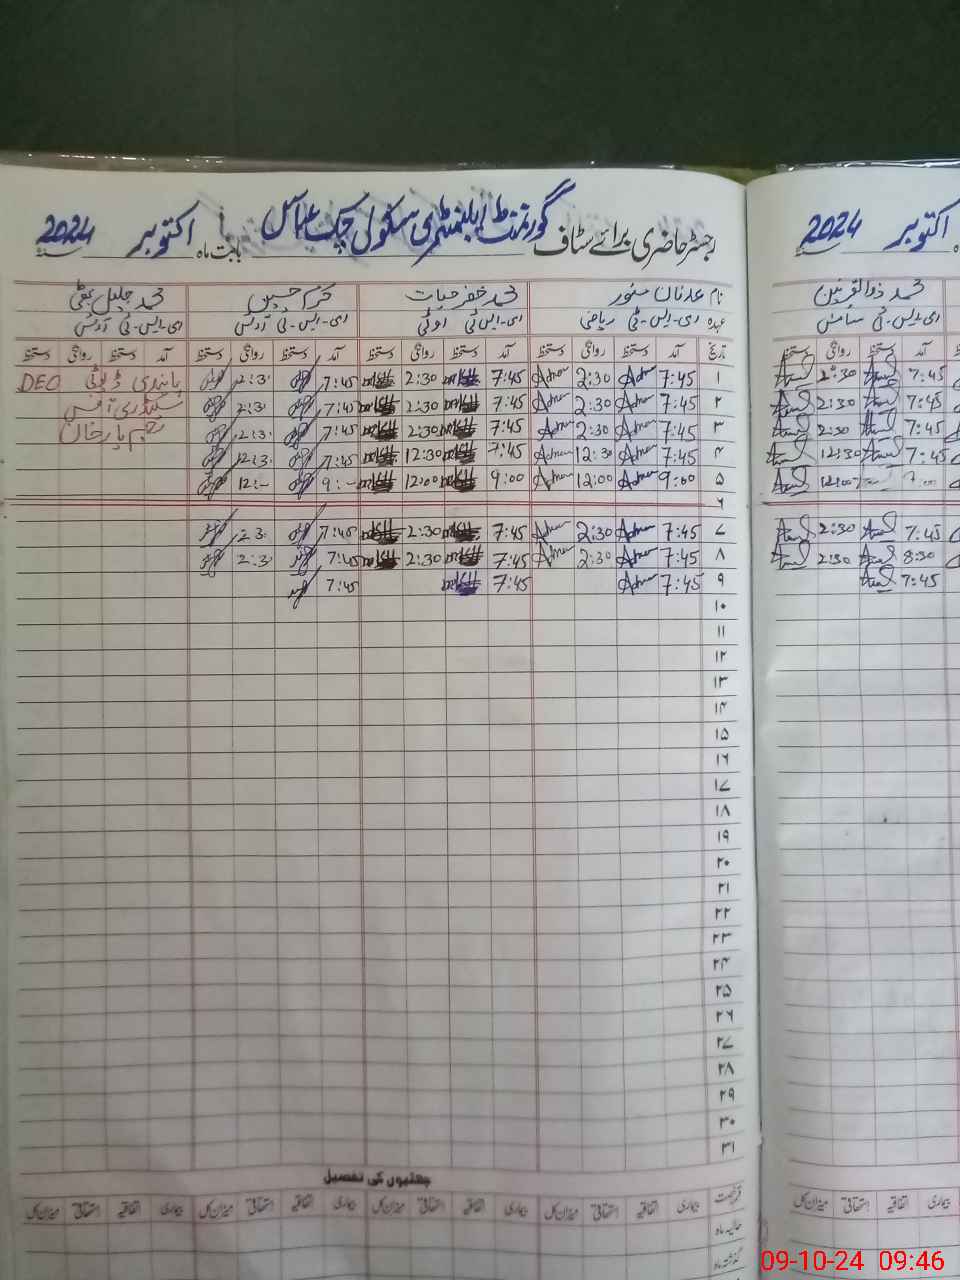 رجسٹر حاضری برائے سٹاف گورنمنٹ ایلیمنٹری سکول چک عباس بابت ماہ اکتوبر 2024
نام عدنان منور محمد خضر حیات خرم حسین محمد جلیل بھٹی
عہدہ ای-ایس-ٹی ریاضی ای-ایس-ٹی اوٹی ای-ایس-ٹی آرٹس ای-ایس-ٹی آرٹس
تاریخ آمد دستخط روانگی دستخط آمد دستخط روانگی دستخط آمد دستخط روانگی دستخط آمد دستخط روانگی دستخط
۱ 7:45 Adnan 2:30 Adnan 7:45 2:30 7:45 2:30 پابندی ڈیوٹی DEO
۲ 7:45 Adnan 2:30 Adnan 7:45 2:30 7:45 2:30 سیکنڈری آفس
۳ 7:45 Adnan 2:30 Adnan 7:45 2:30 7:45 2:30 رحیم یار خان
۴ 7:45 Adnan 12:30 Adnan 7:45 12:30 7:45 12:30
۵ 9:00 Adnan 12:00 Adnan 9:00 12:00 9:- 12:-
۶
۷ 7:45 Adnan 2:30 Adnan 7:45 2:30 7:45 2:30
۸ 7:45 Adnan 2:30 Adnan 7:45 2:30 7:45 2:30
۹ 7:45 Adnan 7:45 7:45
۱۰
۱۱
۱۲
۱۳
۱۴
۱۵
۱۶
۱۷
۱۸
۱۹
۲۰
۲۱
۲۲
۲۳
۲۴
۲۵
۲۶
۲۷
۲۸
۲۹
۳۰
۳۱
چھٹیوں کی تفصیل
قسم رخصت بیماری استحقاقی اتفاقیہ میزان کل بیماری استحقاقی اتفاقیہ میزان کل بیماری اتفاقیہ استحقاقی میزان کل بیماری اتفاقیہ استحقاقی میزان کل
حالیہ ماہ
گذشتہ ماہ
اکتوبر 2024
محمد ذوالقرنین
ای-ایس-ٹی سائنس
آمد دستخط روانگی دستخط
7:45 2:30
7:45 2:30
7:45 2:30
7:45 12:30
12:00
7:45 2:30
8:30 2:30
7:45
بیماری اتفاقیہ استحقاقی میزان کل
09-10-24 09:46